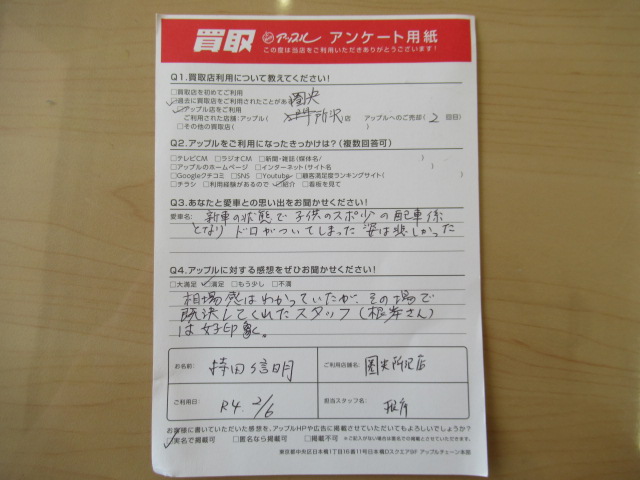 買取 アップル アンケート用紙
この度は当店をご利用いただきありがとうございます!
Q1.買取店利用について教えてください!
□買取店を初めてご利用
□過去に買取店をご利用されたことがある 圏央
□アップル店をご利用
ご利用された店舗:アップル( 所沢店 アップルへのご売却( 2 回目)
□その他の買取店( )
Q2.アップルをご利用になったきっかけは?(複数回答可)
□テレビCM □ラジオCM □新聞・雑誌(媒体名/ )
□アップルのホームページ □インターネット(サイト名 )
□Googleクチコミ □SNS □Youtube □顧客満足度ランキングサイト( )
□チラシ □利用経験があるので □紹介 □看板を見て
Q3.あなたと愛車との思い出をお聞かせください!
愛車名: 新車の状態で子供のスポ少の配車係
となり ドロがついてしまった姿は悲しかった
Q4.アップルに対する感想をぜひお聞かせください!
□大満足 □満足 □もう少し □不満
相場感はわかっていたが、その場で
即決してくれたスタッフ(根岸さん)
は好印象。
お名前: 持田信明 ご利用店舗名: 圏央所沢店
ご利用日: R4. 2/6 担当スタッフ名: 根岸
お客様に書いていただいた感想を、アップルHPや広告に掲載させていただいてもよろしいでしょうか?
□実名で掲載可 □匿名なら掲載可 □掲載不可 ※ご記入がない場合は匿名での掲載とさせていただきます。
東京都中央区日本橋1丁目16番11号日本橋Dスクエア8F アップルチェーン本部